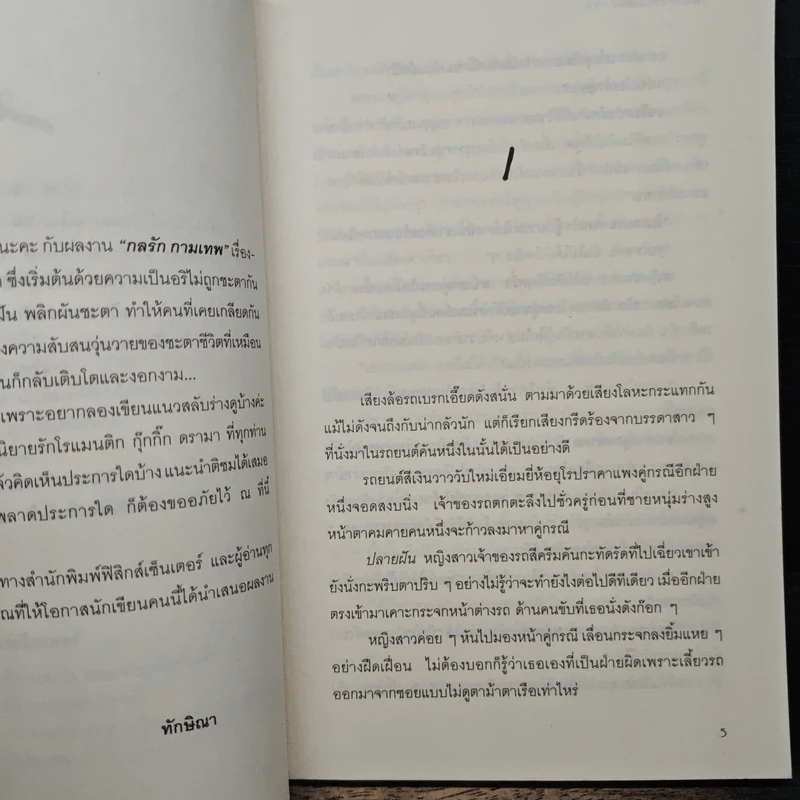 นะคะ กับผลงาน “กลรัก กามเทพ” เรื่อง-
ซึ่งเริ่มต้นด้วยความเป็นอริไม่ถูกชะตากัน
ฝัน พลิกผันชะตา ทำให้คนที่เคยเกลียดกัน
งความสับสนวุ่นวายของชะตาชีวิตที่เหมือน
นก็กลับเติบโตและงอกงาม...
เพราะอยากลองเขียนแนวสลับร่างดูบ้างค่ะ
นิยายรักโรแมนติก กุ๊กกิ๊ก ดรามา ที่ทุกท่าน
ล้วคิดเห็นประการใดบ้าง แนะนำติชมได้เสมอ
พลาดประการใด ก็ต้องขออภัยไว้ ณ ที่นี้
ทางสำนักพิมพ์ฟิสิกส์เซ็นเตอร์ และผู้อ่านทุก
ณที่ให้โอกาสนักเขียนคนนี้ได้นำเสนอผลงาน
ทักษิณา
1
เสียงล้อรถเบรกเอี๊ยดดังสนั่น ตามมาด้วยเสียงโลหะกระแทกกัน
แม้ไม่ดังจนถึงกับน่ากลัวนัก แต่ก็เรียกเสียงกรีดร้องจากบรรดาสาว ๆ
ที่นั่งมาในรถยนต์คันหนึ่งในนั้นได้เป็นอย่างดี
รถยนต์สีเงินวาววับใหม่เอี่ยมยี่ห้อยุโรปราคาแพงคู่กรณีอีกฝ่าย
หนึ่งจอดสงบนิ่ง เจ้าของรถตกตะลึงไปชั่วครู่ก่อนที่ชายหนุ่มร่างสูง
หน้าตาคมคายคนหนึ่งจะก้าวลงมาหาคู่กรณี
ปลายฝัน หญิงสาวเจ้าของรถสีครีมคันกะทัดรัดที่ไปเฉี่ยวเขาเข้า
ยังนั่งกะพริบตาปริบ ๆ อย่างไม่รู้ว่าจะทำยังไงต่อไปดีทีเดียว เมื่ออีกฝ่าย
ตรงเข้ามาเคาะกระจกหน้าต่างรถ ด้านคนขับที่เธอนั่งดังก๊อก ๆ
หญิงสาวค่อย ๆ หันไปมองหน้าคู่กรณี เลื่อนกระจกลงยิ้มแหย ๆ
อย่างฝืดเฝื่อน ไม่ต้องบอกก็รู้ว่าเธอเองที่เป็นฝ่ายผิดเพราะเลี้ยวรถ
ออกมาจากซอยแบบไม่ดูตาม้าตาเรือเท่าไหร่
5